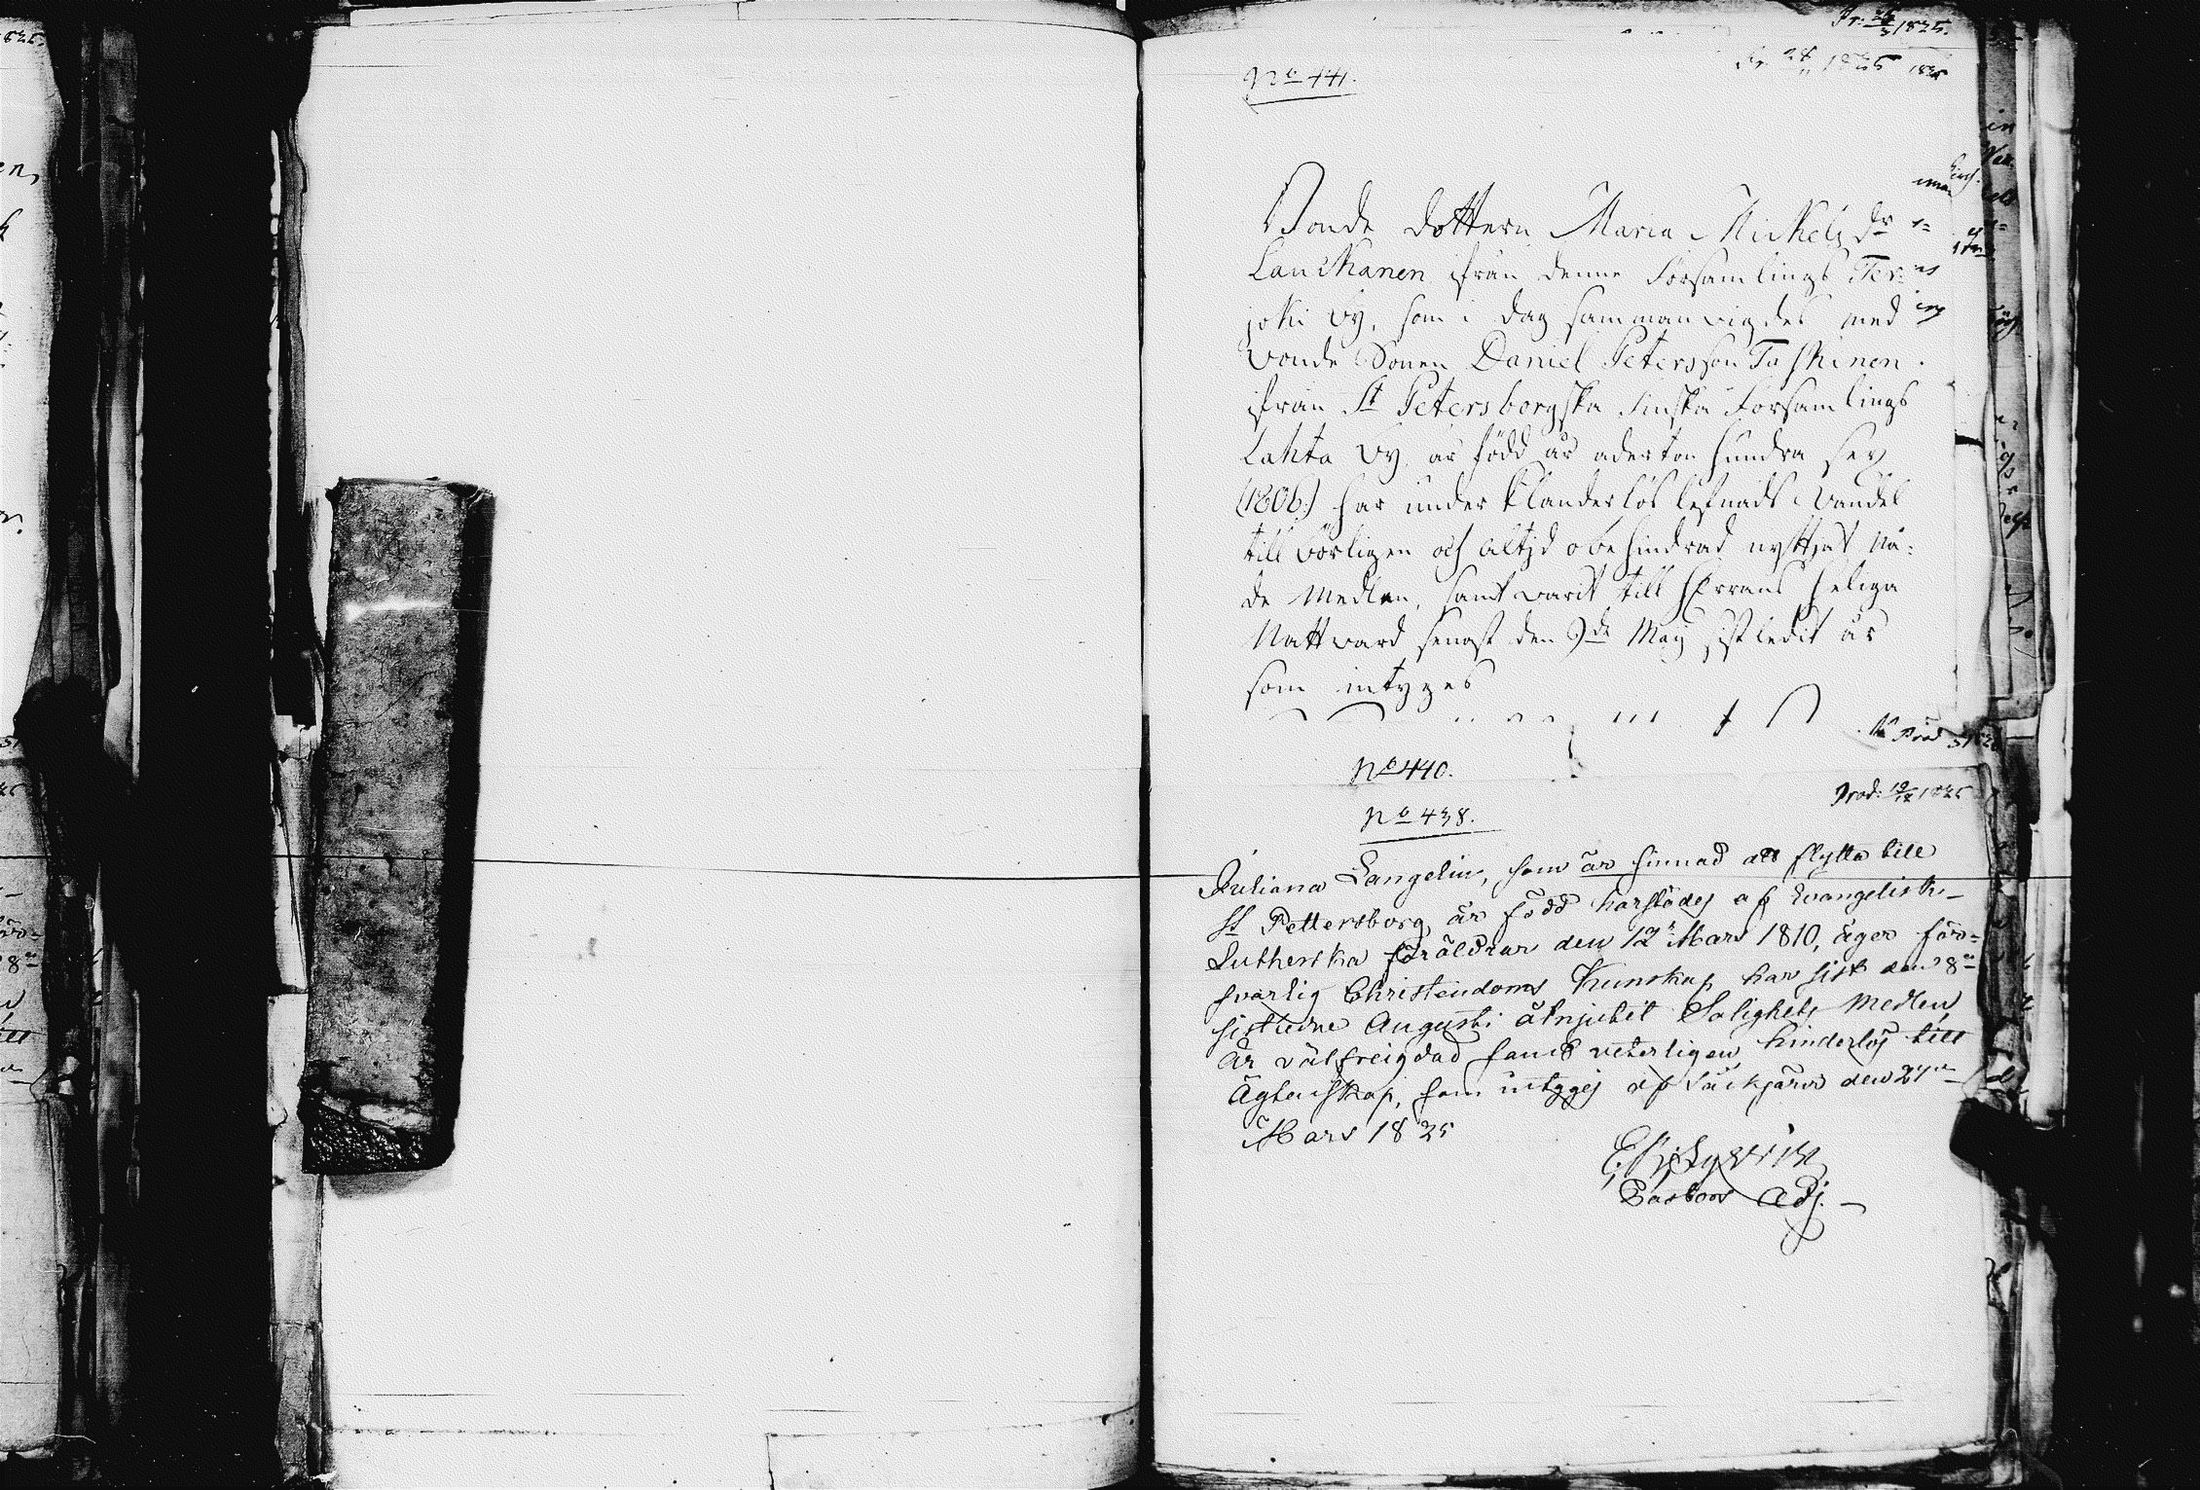 Pr: 1825.
Pr. 28/11 1825
No 441.
Bonde dottern Maria Mickelsdr
Lauckanen ifrån denne Församlings Ter=
joki by, som i dag sammanvigdes med
bonde Sonen Daniel Petersson Taskinen
ifrån St Petersborgska Finska Församlings
Lahta by, är född år aderton hundra sex
(1806.) har under klanderlös lefnads Vandel
till börligen och altid obehindrad nyttjat Nå=
de Medlen, samt varit till HErrans heliga
Nattvard senast den 9de Maij sistledit år
som intyges
No 440.
Prod: 19/12 1825
No 438.
Juliana Langelin, som är sinnad att flytta till
St Pettersborg, är född härstädes af Evangelisk-
Lutherska föräldrar den 12 Mars 1810, äger för=
svarlig Christendoms Kunskap har sist den 8de
sistledne Augusti åtnjutit Salighets Medlen,
är välfreigdad samt veterligen hinderlös till
Ägtenskap, som intyges af Säckjärvi den 27de
Mars 1825
Pastors Adj.